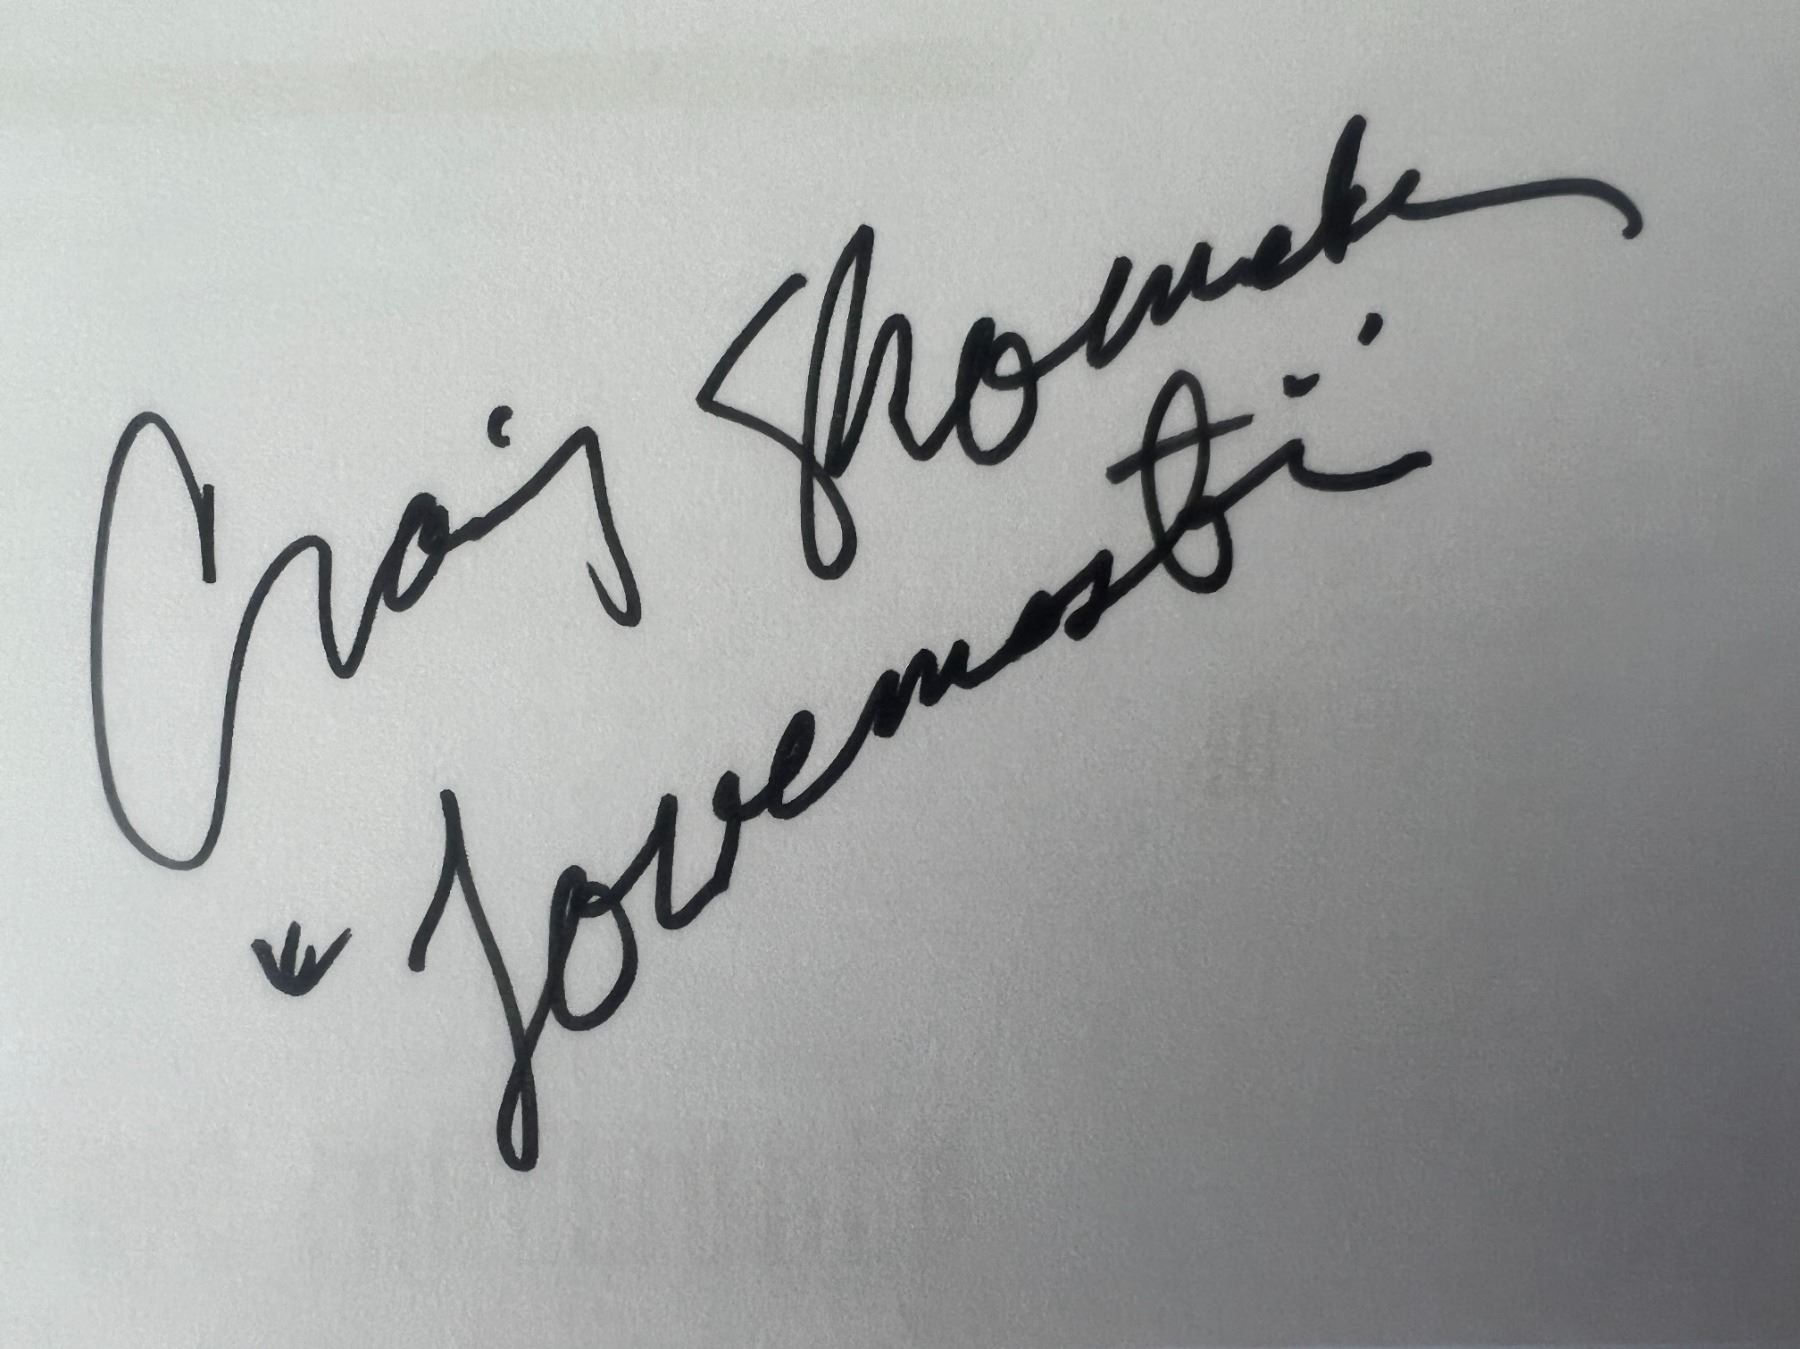 Craig Shoemaker
Lovemaster